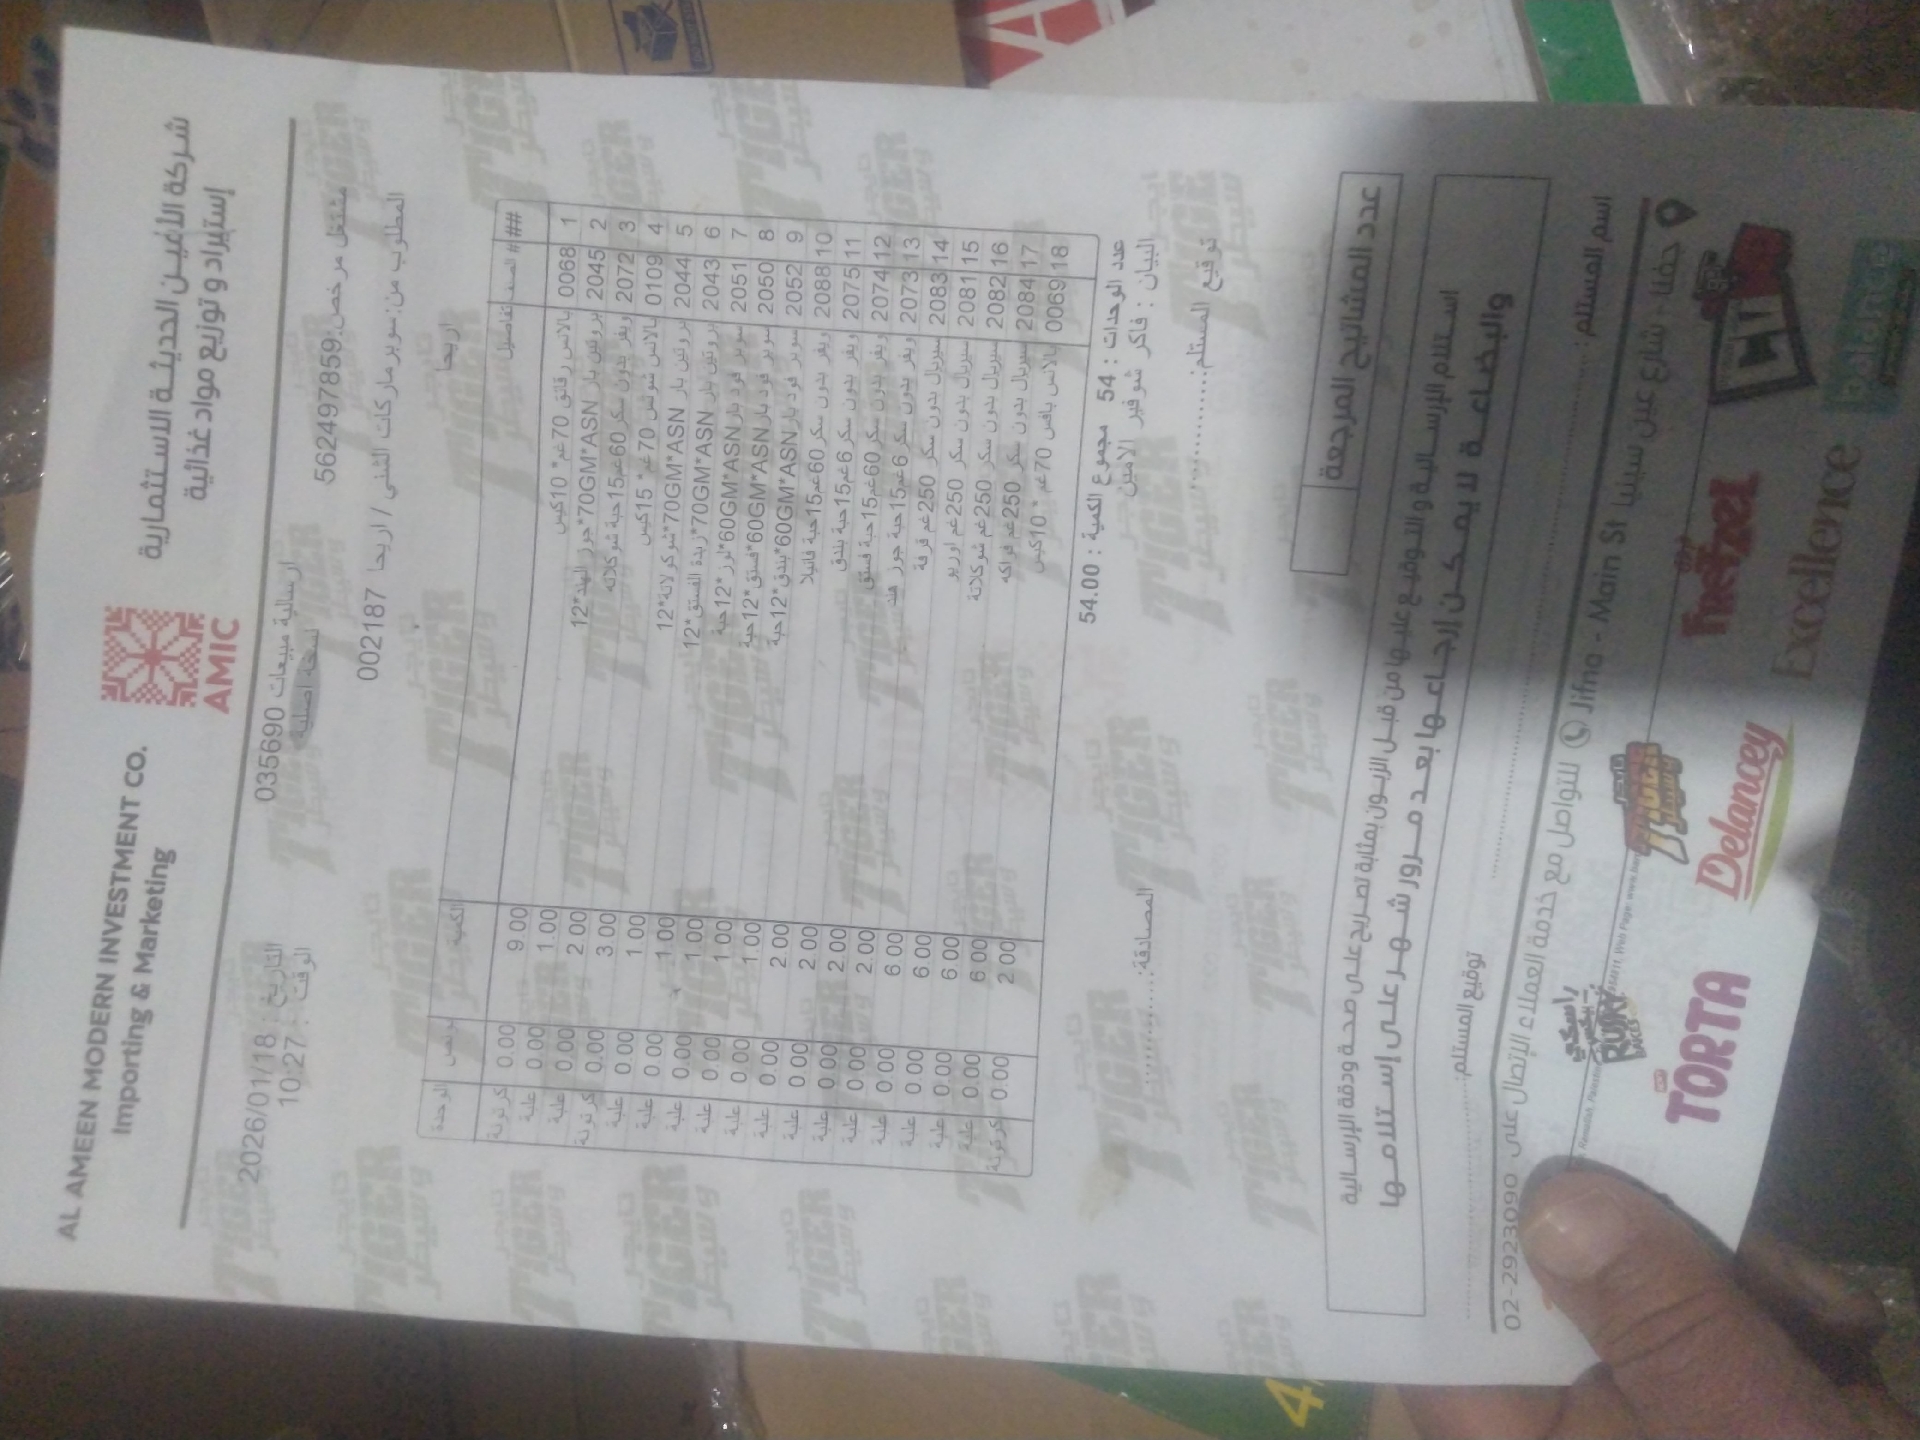 AL AMEEN MODERN INVESTMENT CO.
Importing & Marketing
AMIC
شركة الأمين الحديثة الاستثمارية
إستيراد و توزيع مواد غذائية
مشتغل مرخص: 562497859
ارسالية مبيعات 035690
نسخة اصلية
التاريخ : 2026/01/18
الوقت : 10:27
المطلوب من: سوبر ماركات الشني / اريحا 002187
اريحا
## الصنف تفاصيل الكمية بونص الوحدة
1 0068 بالانس رقائق 70غم* 10كيس 9.00 0.00 كرتونة
2 2045 بروتين بار 70GM*ASN*جوز الهند*12 1.00 0.00 علبة
3 2072 ويفر بدون سكر 60غم15حبة شوكلاته 2.00 0.00 علبة
4 0109 بالانس شوتس 70غم* 15كيس 3.00 0.00 كرتونة
5 2044 بروتين بار 70GM*ASN*شوكولاتة*12 1.00 0.00 علبة
6 2043 بروتين بار 70GM*ASN*زبدة الفستق*12 1.00 0.00 علبة
7 2051 سوبر فود بار 60GM*ASN*لوز*12حبة 1.00 0.00 علبة
8 2050 سوبر فود بار 60GM*ASN*فستق*12حبة 1.00 0.00 علبة
9 2052 سوبر فود بار 60GM*ASN*بندق*12حبة 1.00 0.00 علبة
10 2088 ويفر بدون سكر 60غم15حبة فانيلا 2.00 0.00 علبة
11 2075 ويفر بدون سكر 6غم15حبة بندق 2.00 0.00 علبة
12 2074 ويفر بدون سكر 60غم15حبة فستق 2.00 0.00 علبة
13 2073 ويفر بدون سكر 6غم15حبة جوز هند 2.00 0.00 علبة
14 2083 سيريال بدون سكر 250غم قرفة 6.00 0.00 علبة
15 2081 سيريال بدون سكر 250غم اوريو 6.00 0.00 علبة
16 2082 سيريال بدون سكر 250غم شوكلاتة 6.00 0.00 علبة
17 2084 سيريال بدون سكر 250غم فواكه 6.00 0.00 علبة
18 0069 بالانس بافس 70غم * 10كيس 2.00 0.00 كرتونة
عدد الوحدات : 54 مجموع الكمية : 54.00
البيان : فاكر شوفير الامين
توقيع المستلم:
المصادقة:
عدد المشاطيح المرجعة
إستلام الإرسالية و التوقيع عليها من قبل الزبون بمثابة تصريح على صحة ودقة الإرسالية
والبضاعة لا يمكن إرجاعها بعد مرور شهر على إستلامها
اسم المستلم:
توقيع المستلم:
جفنا - شارع عين سينيا Jifna - Main St
للتواصل مع خدمة العملاء الإتصال على 02-2923090
TIGER
TORTA
Delancey
Excellence
Balance